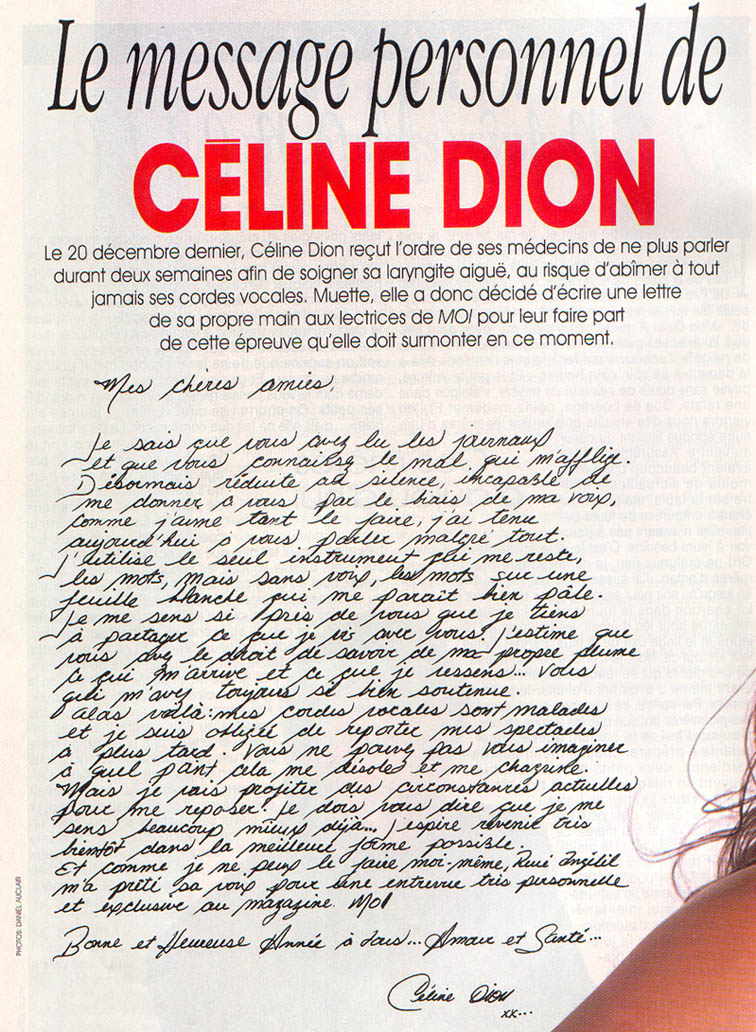 Le message personnel de
CÉLINE DION
Le 20 décembre dernier, Céline Dion reçut l'ordre de ses médecins de ne plus parler
durant deux semaines afin de soigner sa laryngite aiguë, au risque d'abîmer à tout
jamais ses cordes vocales. Muette, elle a donc décidé d'écrire une lettre
de sa propre main aux lectrices de MOI pour leur faire part
de cette épreuve qu'elle doit surmonter en ce moment.
Mes chères amies,
Je sais que vous avez lu les journaux
et que vous connaissez le mal qui m'afflige.
Désormais réduite au silence, incapable de
me donner à vous par le biais de ma voix,
comme j'aime tant le faire, j'ai tenu
aujourd'hui à vous parler malgré tout.
J'utilise le seul instrument qui me reste,
les mots, mais sans voix, les mots sur une
feuille blanche qui me paraît bien pâle.
Je me sens si près de vous que je tiens
à partager ce que je vis avec vous. J'estime que
vous avez le droit de savoir de ma propre plume
ce qui m'arrive et ce que je ressens... Vous
qui m'avez toujours si bien soutenue.
Alas voilà: mes cordes vocales sont malades
et je suis obligée de reporter mes spectacles
à plus tard. Vous ne pouvez pas vous imaginer
à quel point cela me désole et me chagrine.
Mais je vais profiter des circonstances actuelles
pour me reposer. Je dois vous dire que je me
sens beaucoup mieux déjà... J'espère revenir très
bientôt dans la meilleure forme possible.
Et comme je ne peux le faire moi-même, René Angélil
m'a prêté sa voix pour une entrevue très personnelle
et exclusive au magazine MOI
Bonne et Heureuse Année à tous... Amour et Santé...
Céline Dion
xx...
PHOTOS: DANIEL AUCLAIR